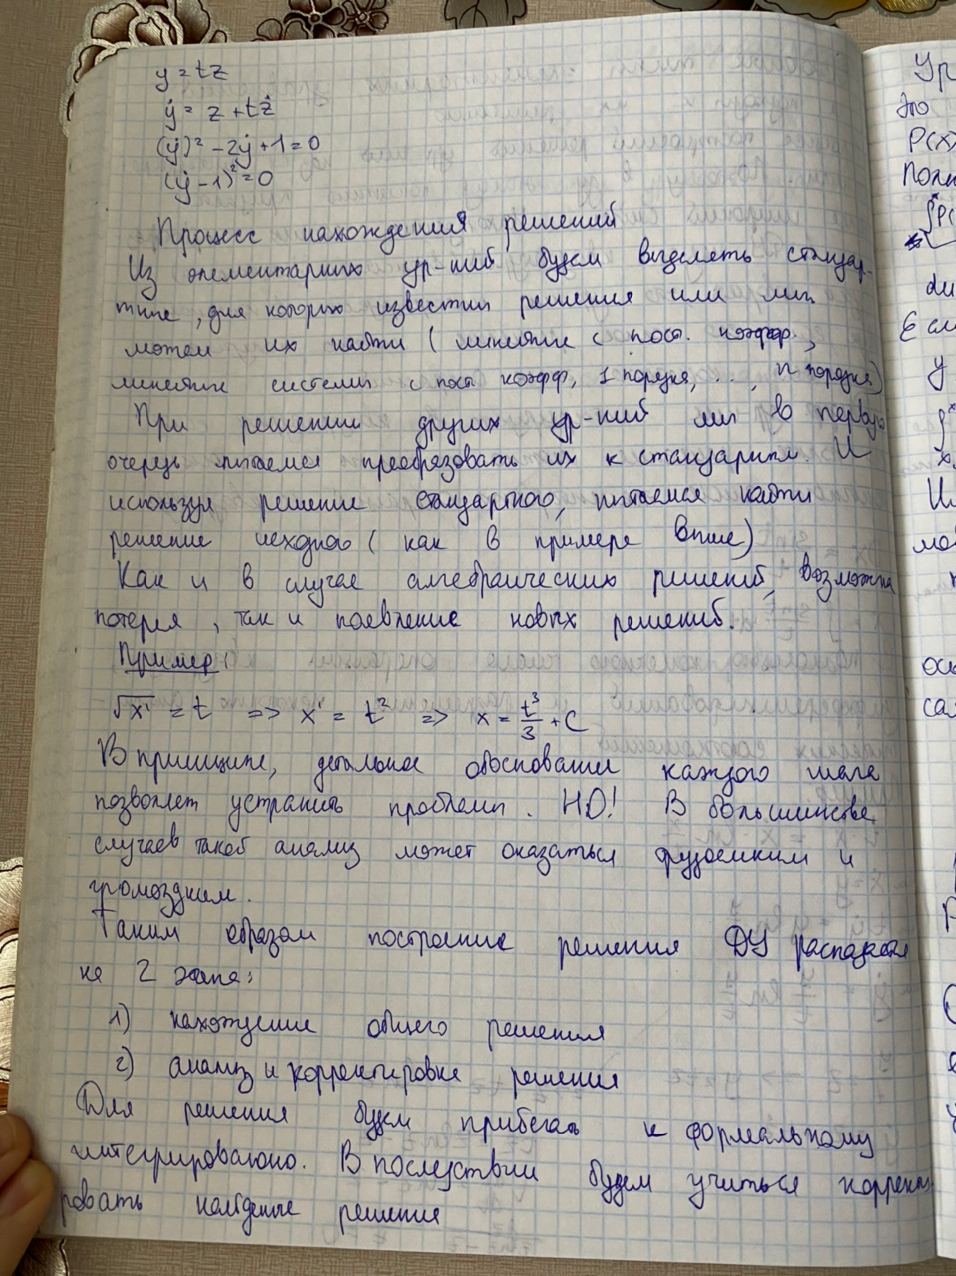 y = tz
ẏ = z + tż
(ẏ)² - 2ẏ + 1 = 0
(ẏ - 1)² = 0
Процесс нахождения решений
Из элементарных ур-ний будем выделять стандар-
тные, для которых известны решения или мы
можем их найти (линейные с пост. коэфф.,
линейные системы с пост коэфф, 1 порядка, ..., n порядка)
При решении других ур-ний мы в первую
очередь пытаемся преобразовать их к стандартным. И
используя решение стандартного, пытаемся найти
решение исходного (как в примере выше)
Как и в случае алгебраических решений, возможна
потеря, так и появление новых решений.
Пример:
√x' = t => x' = t² => x = t³/3 + C
В принципе, детальное обоснование каждого шага
позволяет устранить проблемы. НО! В большинстве
случаев такой анализ может оказаться трудоемким и
громоздким.
Таким образом построение решения ДУ распадается
на 2 этапа:
1) нахождение общего решения
2) анализ и корректировка решения
Для решения будем прибегать к формальному
интегрированию. В последствии будем учиться корректи-
ровать найденные решения
Ур
Это
P(x)
Полн
∫P(
du
Если
y
∫
x
И
мо
осо
са